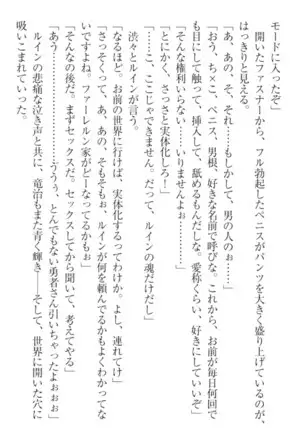 モードに入ったぞ」
開いたファスナーから、フル勃起したペニスがパンツを大きく盛り上げているのが、
はっきりと見える。
「あ、あの、そ、それ……もしかして、男の人のぉ……」
「おう、ち×こ、ペニス、男根、好きな名前で呼びな。これから、お前が毎日何回で
も目にして触って、挿入して、舐めるもんだしな。愛称くらい、好きにしていいぞ」
「そんな権利いらな……いりませんよぉ……」
「とにかく、さっさと実体化しろ！」
「……こ、ここじゃできません。だって、ルインの魂だけだし」
渋々とルインが答える。
「なるほど。お前の世界に行けば、実体化するってわけか。よし、連れてけ」
「さっそくって、あ、あの、そもそもぉ、ルインが何を頼んでるかもよくわかってな
いですよね。ファーレルン家がどーなってるかもぉ」
「そんなの後だ。まずセックスだ。セックスしてから聞いて、考えてやる」
「あう…………ふうぅ、とんでもない勇者さん引いちゃったよぉぉぉ」
ルインの悲痛な泣き声と共に、竜治もまた青く輝き――そして、世界に開いた穴に
吸いこまれていった。